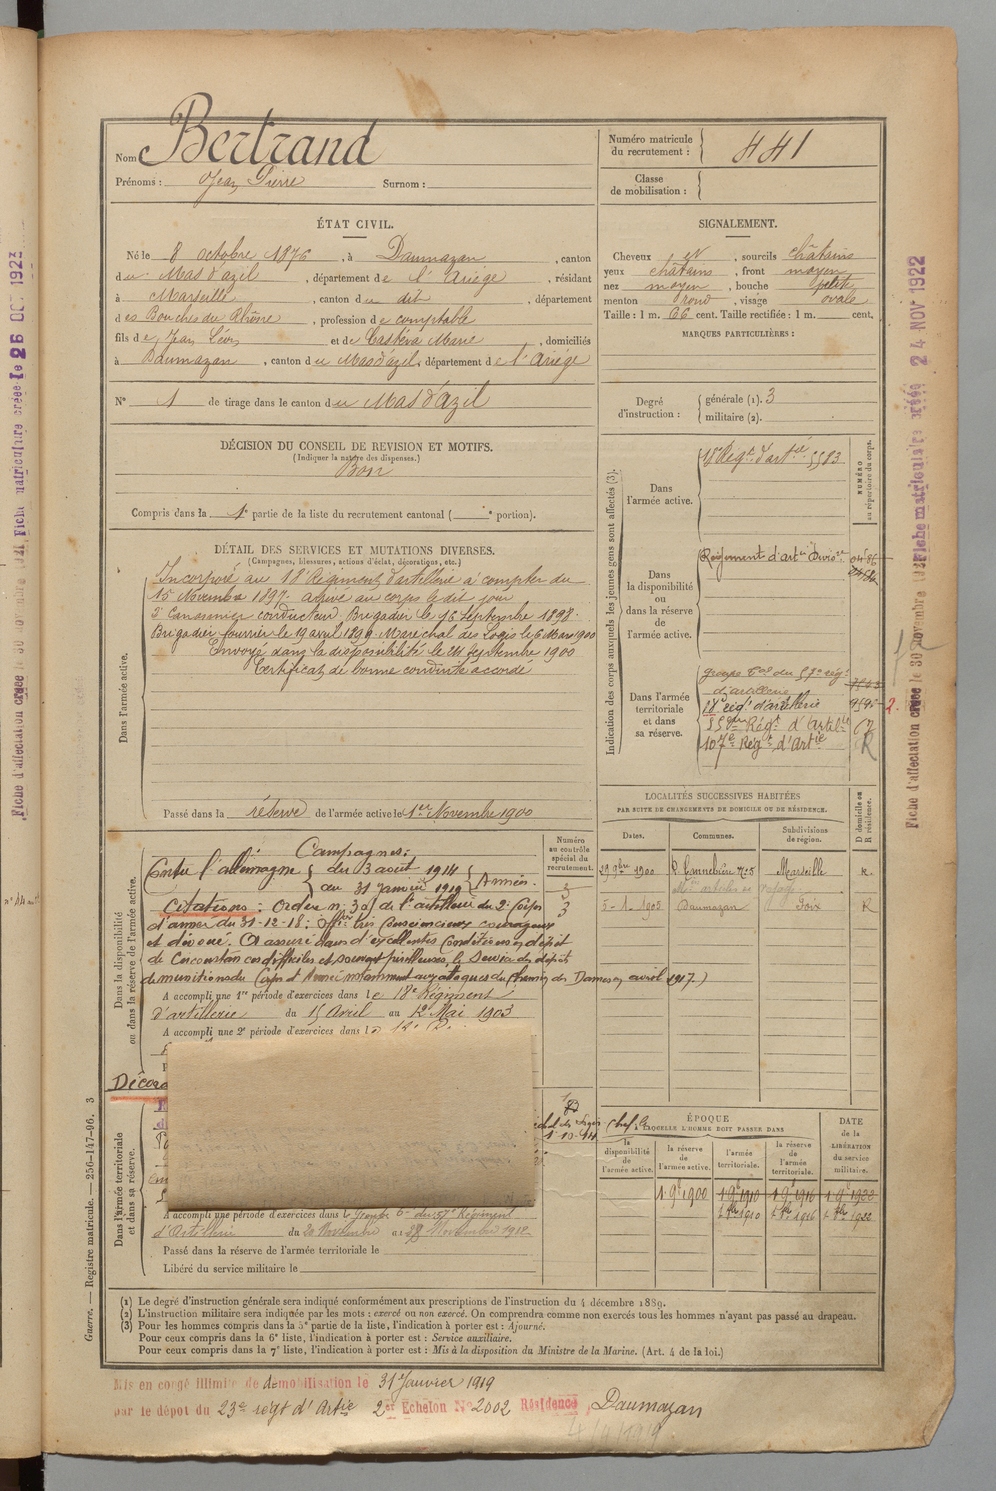 Nom Bertrand
Prénoms : Jean Pierre Surnom :
Numéro matricule du recrutement : 441
Classe de mobilisation :
ÉTAT CIVIL.
Né le 8 octobre 1876, à Daumazan, canton
du Mas d'azil, département de l'Ariège, résidant
à Marseille, canton du dit, département
des Bouches du Rhône, profession de comptable
fils de Jean Lévis et de Castéva Marie, domiciliés
à Daumazan, canton du Mas d'azil, département de l'Ariège
N° 1 de tirage dans le canton du Mas d'azil
SIGNALEMENT.
Cheveux et, sourcils châtains
yeux châtains, front moyen
nez moyen, bouche petite
menton rond, visage ovale
Taille : 1 m. 66 cent. Taille rectifiée : 1 m. cent.
MARQUES PARTICULIÈRES :
Degré d'instruction : générale (1). 3
militaire (2).
DÉCISION DU CONSEIL DE REVISION ET MOTIFS.
(Indiquer la nature des dispenses.)
Bon
Compris dans la 1e partie de la liste du recrutement cantonal ( e portion).
DÉTAIL DES SERVICES ET MUTATIONS DIVERSES.
(Campagnes, blessures, actions d'éclat, décorations, etc.)
Dans l'armée active.
Incorporé au 18e Régiment d'artillerie à compter du
15 Novembre 1897. arrivé au corps le dit jour
2e Canonnier conducteur. Brigadier le 16 Septembre 1898.
Brigadier fourrier le 19 avril 1899. Maréchal des Logis le 6 Mars 1900
Envoyé dans la disponibilité le 24 Septembre 1900
Certificat de bonne conduite accordé
Passé dans la réserve de l'armée active le 1er Novembre 1900
Indication des corps auxquels les jeunes gens sont affectés (3).
NUMÉRO au répertoire du corps.
Dans l'armée active.
18e Régt d'artie 5583
Dans la disponibilité ou dans la réserve de l'armée active.
Régiment d'artie Divisre
Dans l'armée territoriale et dans sa réserve.
groupe tal du 57e régt
d'artillerie
18e régt d'artillerie
107e Régt d'Artie
LOCALITÉS SUCCESSIVES HABITÉES
PAR SUITE DE CHANGEMENTS DE DOMICILE OU DE RÉSIDENCE.
Dates. Communes. Subdivisions de région. D domicile ou R résidence.
1900 R. Cannebière Marseille R.
5-1-1905 Daumazan Foix R
Dans la disponibilité ou dans la réserve de l'armée active.
Numéro au contrôle spécial du recrutement.
Campagnes :
Contre l'allemagne du 3 août 1914
au 31 janvier 1919 Armées.
Citations : Ordre n° 30 de l'artillerie du 2e Corps
d'armée du 31-12-18 : Offier très consciencieux courageux
et dévoué. A assuré dans d'excellentes conditions en dépit
de circonstances difficiles et souvent périlleuses, le service des dépôts
de munitions du Corps d'Armée notamment aux attaques du Chemin des Dames en avril 1917.)
A accompli une 1re période d'exercices dans le 18e Régiment
d'artillerie du 15 Avril au 12 Mai 1903
A accompli une 2e période d'exercices dans le
Décora
Dans l'armée territoriale et dans sa réserve.
1-10-14
A accompli une période d'exercices dans le Groupe du 57e Régiment
d'Artillerie du 20 Novembre au 28 Novembre 1912
Passé dans la réserve de l'armée territoriale le
Libéré du service militaire le
ÉPOQUE
A LAQUELLE L'HOMME DOIT PASSER DANS
la disponibilité de l'armée active. la réserve de l'armée active. l'armée territoriale. la réserve de l'armée territoriale.
DATE de la LIBÉRATION du service militaire.
1 9e 1900 1 9e 1910 1 9e 1916 1 9e 1922
1910 1916 1922
(1) Le degré d'instruction générale sera indiqué conformément aux prescriptions de l'instruction du 4 décembre 1889.
(2) L'instruction militaire sera indiquée par les mots : exercé ou non exercé. On comprendra comme non exercés tous les hommes n'ayant pas passé au drapeau.
(3) Pour les hommes compris dans la 5e partie de la liste, l'indication à porter est : Ajourné.
Pour ceux compris dans la 6e liste, l'indication à porter est : Service auxiliaire.
Pour ceux compris dans la 7e liste, l'indication à porter est : Mis à la disposition du Ministre de la Marine. (Art. 4 de la loi.)
Mis en congé illimité de démobilisation le 31 Janvier 1919
par le dépôt du 23e régt d'Artie 2e Echelon N° 2002 Résidence Daumazan
4/4/1919
Guerre. — Registre matricule. — 256-147-96. 3
Fiche d'affectation créée le 30 novembre 1921 Fiche matriculaire créée le 26 OCT 1923
Fiche d'affectation créée le 30 novembre 1921 Fiche matriculaire créée 24 NOV 1922